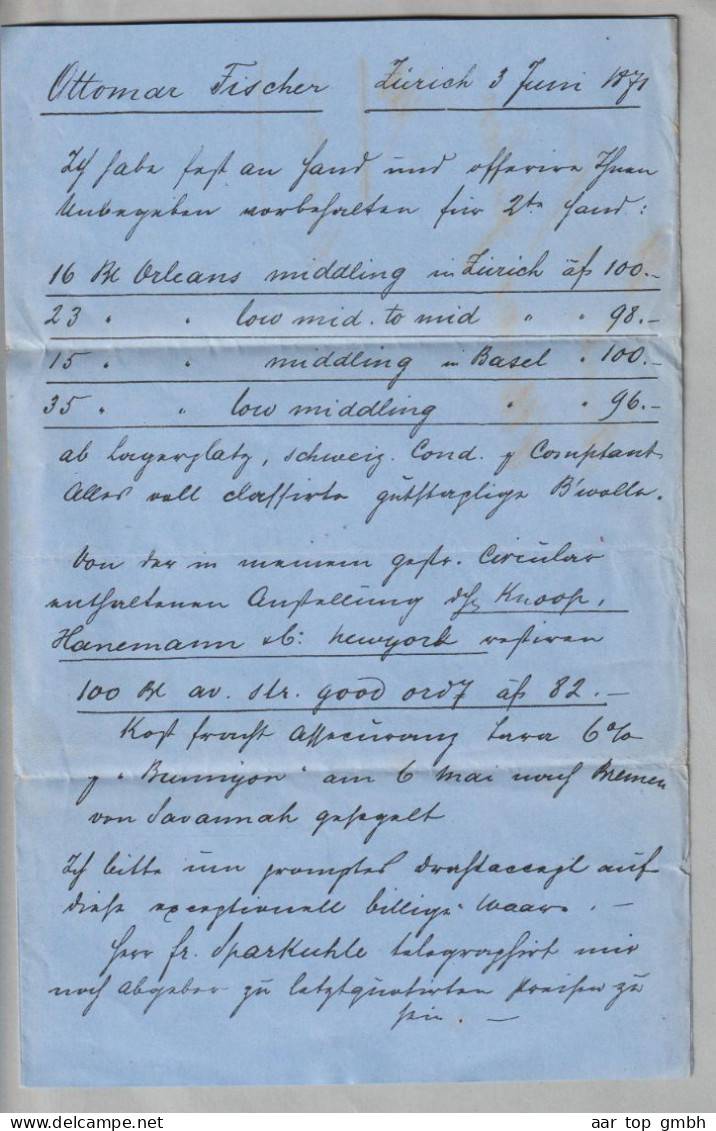 Ottomar Fischer Zürich 3 Juni 1871
Ich habe fest an Hand und offerire Ihnen
Unbegeben vorbehalten für 2te Hand:
16 Bl Orleans middling in Zürich à fs 100.-
23 " " low mid. to mid " " 98.-
15 " " middling in Basel " 100.-
35 " " low middling " " 96.-
ab Lagerplatz, schweiz. Cond. p Comptant
Alles voll classirte gutstaplige B'wolle.
Von der in meinem gestr. Circular
enthaltenen Anstellung Knoop,
Hanemann & C: Newyork restiren
100 Bl av. str. good ordy à fs 82.-
Kost fracht Assecuranz tara 6%
p " " am 6 Mai nach Bremen
von Savannah gesegelt
Ich bitte um promptes Drahtaccept auf
diese exceptionell billige Waare. -
Herr Fr. Sparkuhle telegraphirt mir
noch Abgeber zu letztquotirten Preisen zu
sein. -
aar top gmbh